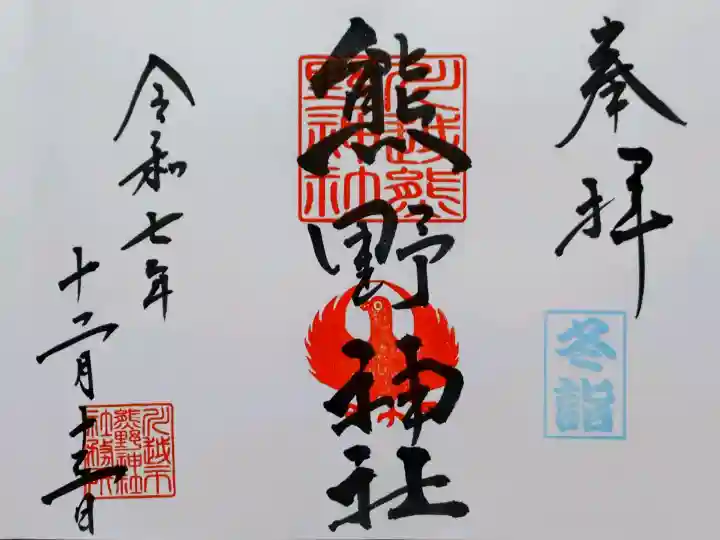 奉拝
冬詣
熊野神社
川越熊
野神社
令和七年
十二月十三日
川越市
熊野神社
社務所